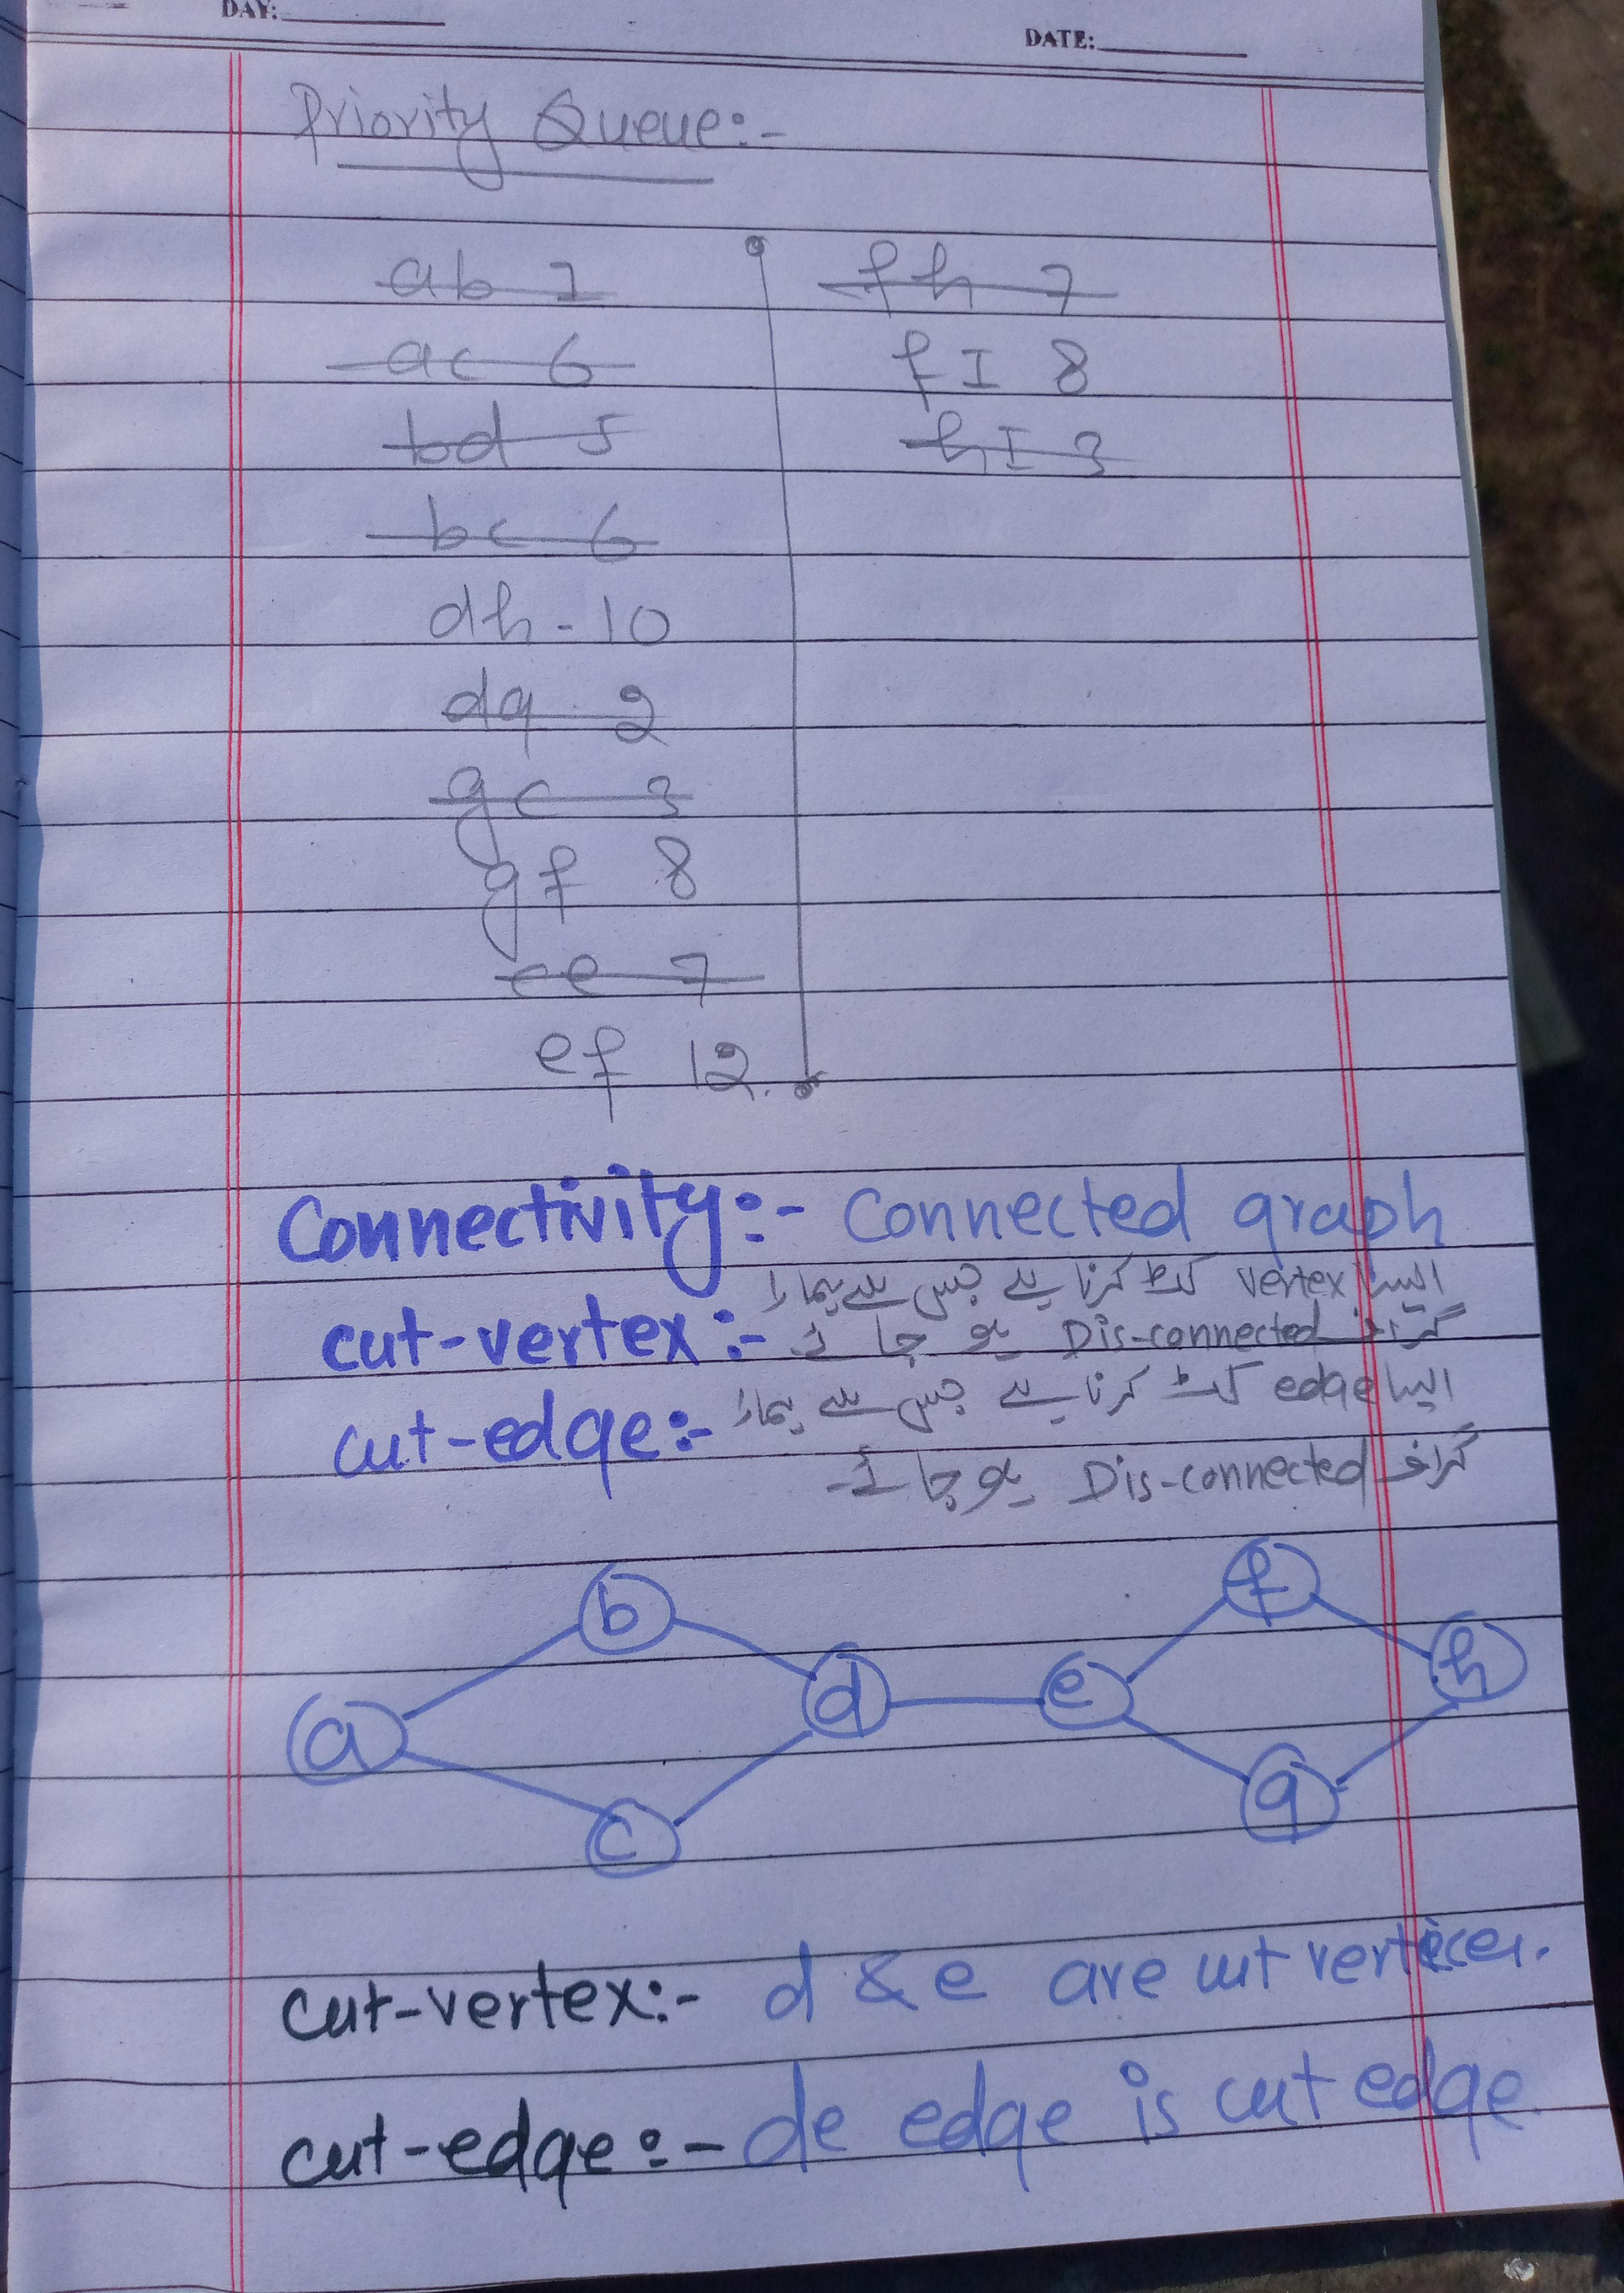 DAY:
DATE:
Priority Queue:-
ab 1
ac 6
bd 5
bc 6
dh - 10
dg 2
gc 3
gf 8
ce 7
ef 12.
fh 7
fI 8
hI 3
Connectivity:- Connected graph
cut-vertex:- ایسا vertex کٹ کرنا ہے جس سے ہمارا
گراف Dis-connected ہو جائے
cut-edge:- ایسا edge کٹ کرنا ہے جس سے ہمارا
گراف Dis-connected ہو جائے۔
b
f
a
d
e
h
c
g
cut-vertex:- d & e are cut vertices.
cut-edge:- de edge is cut edge.